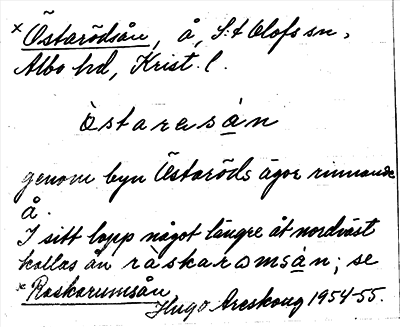 × Östarödsån, å, S:t Olofs sn,
Albo hd, Krist. l.
östaresån
genom byn Östaröds ägor rinnande
å.
I sitt lopp något längre åt nordväst
kallas ån råskaramsån; se
× Raskarumsån
Hugo Areskoug 1954-55.